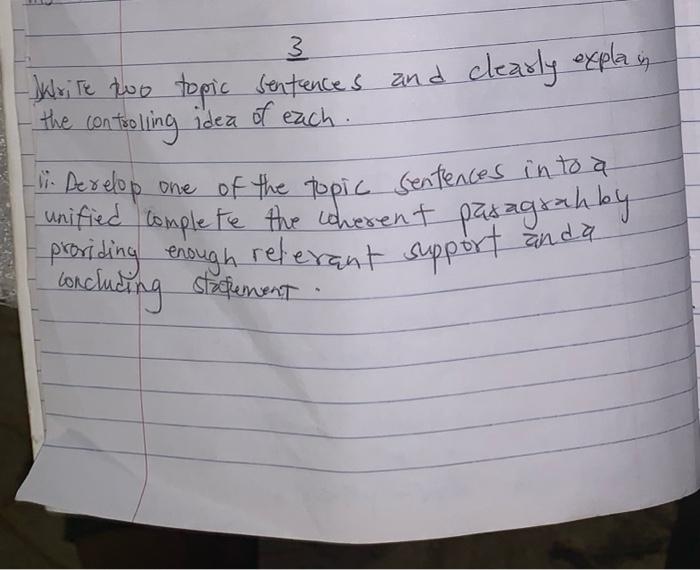 3
Write two topic sentences and clearly explain
the controlling idea of each.
ii. Develop one of the topic sentences into a
unified complete the coherent paragrah by
providing enough relevant support and a
concluding statement.